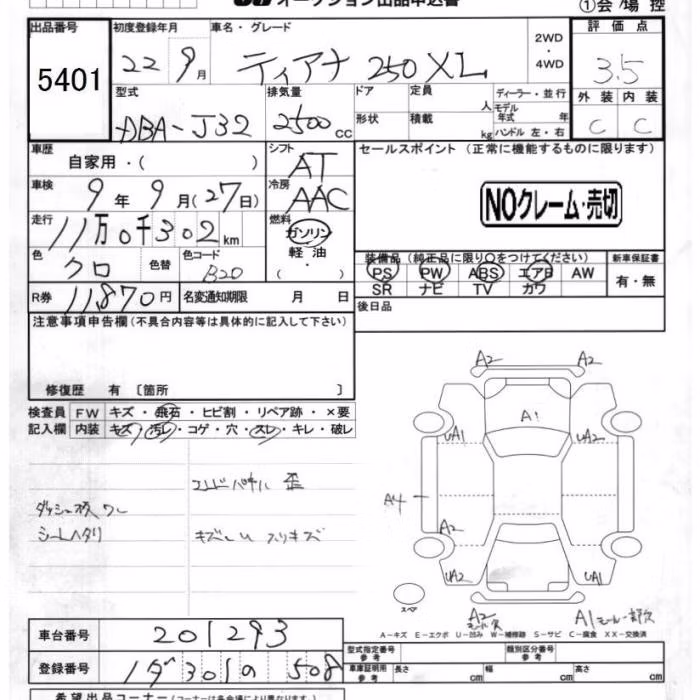 オークション出品申込書
①会／場 控
出品番号 初度登録年月 車名・グレード 2WD・4WD 評価点
5401 22 9月 ティアナ 250XL 3.5
型式 排気量 ドア 定員 人 ディーラー・並行 外装 内装
DBA-J32 2500cc 形状 積載 kg モデル年式 年 ハンドル 左・右 C C
車歴 自家用・( ) シフト AT セールスポイント (正常に機能するものに限ります)
車検 9年9月(27日) 冷房 AAC NOクレーム・売切
走行 11万0千302km 燃料 ガソリン・軽油・( )
色 クロ 色替 色コード B20
装備品 (純正品に限り○をつけてください) 新車保証書
PS PW ABS エアB AW 有・無
SR ナビ TV カワ
R券 11870円 名変通知期限 月 日 後日品
注意事項申告欄(不具合内容等は具体的に記入して下さい)
修復歴 有〔箇所 〕
検査員 FW キズ・飛石・ヒビ割・リペア跡・×要
記入欄 内装 キズ・汚レ・コゲ・穴・スレ・キレ・破レ
A2 A2
A1
UA1 UA2
A4
A2
UA2 UA1
スペア
A2
A1
シートヘタリ
A-キズ E-エクボ U-凹み W-補修跡 S-サビ C-腐食 XX-交換済
車台番号 201293
型式指定番号 参考 類別区分番号 参考
登録番号 301 508
車庫証明用 参考 長さ cm 幅 cm 高さ cm
希望出品コーナー